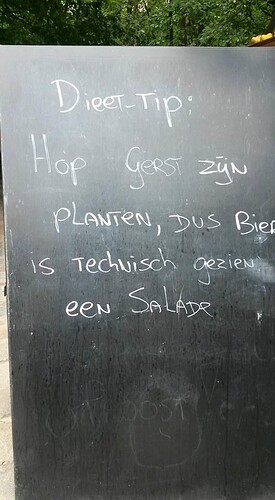 Dieet-Tip:
Hop Gerst zijn
planten, dus Bier
is technisch gezien
een Salade